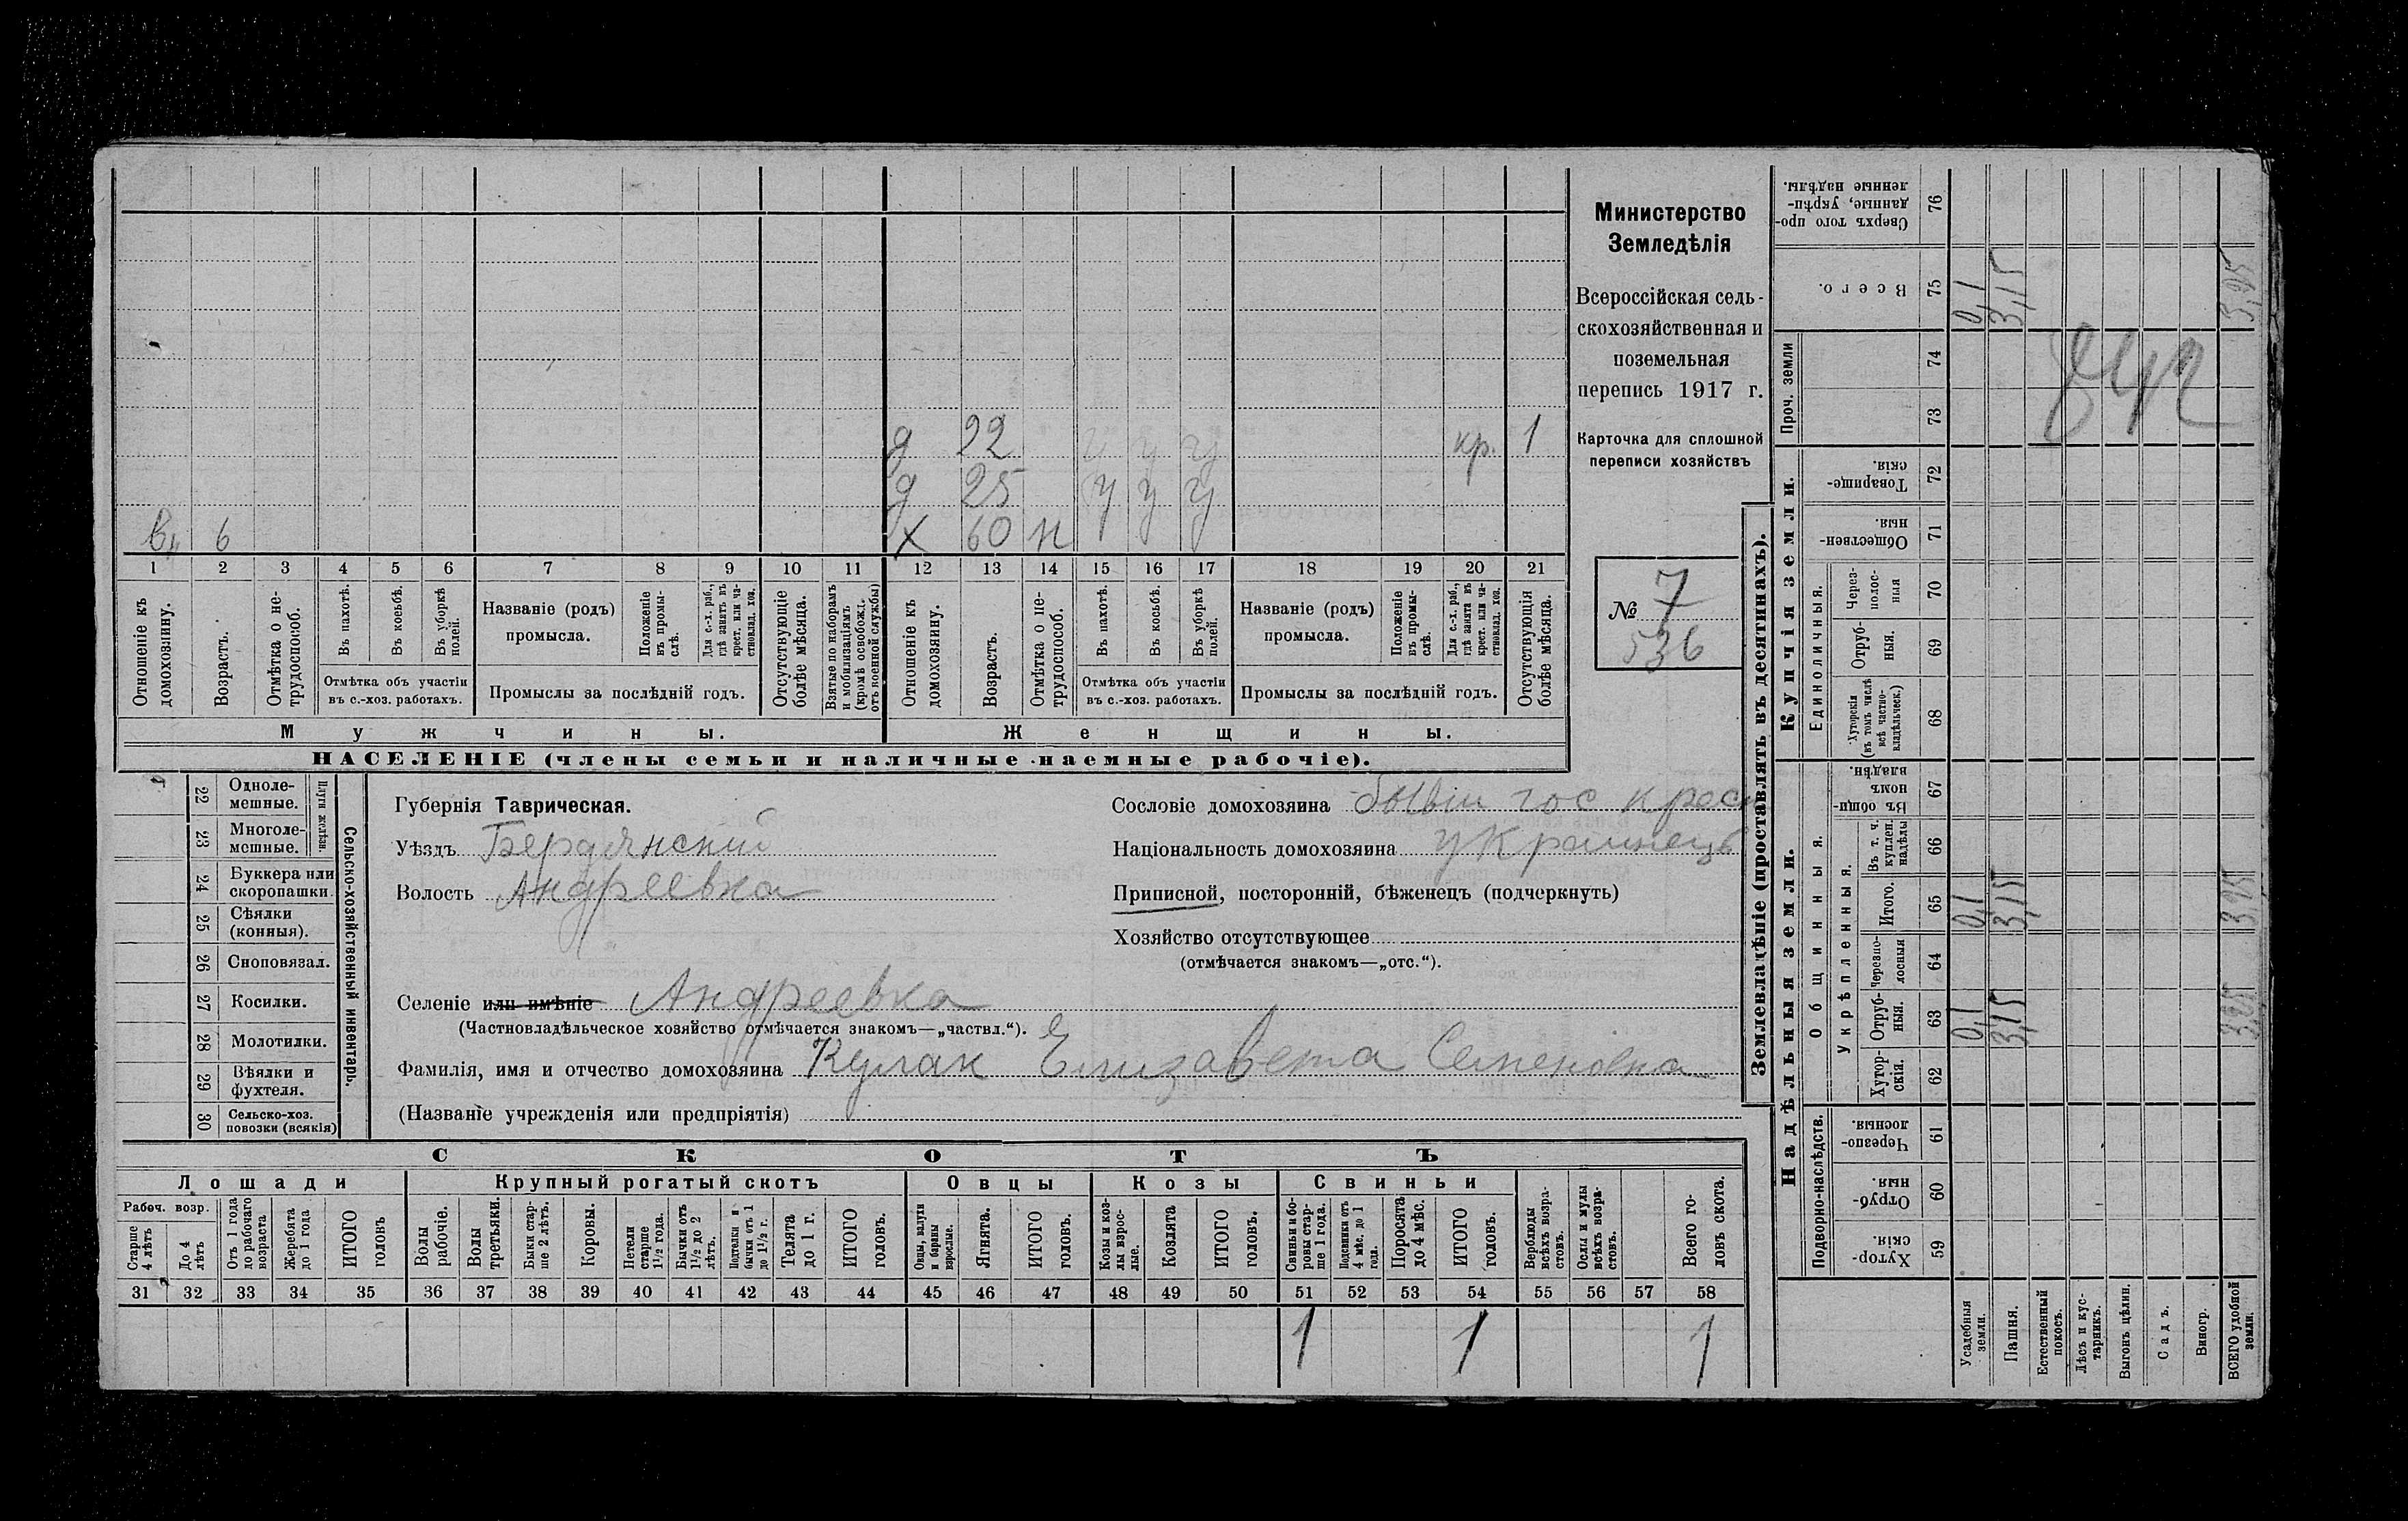 д 22 у у у кр. 1
д 25 у у у
вн 6 х 60 н
1 2 3 4 5 6 7 8 9 10 11 12 13 14 15 16 17 18 19 20 21
Отношеніе къ домохозяину.
Возрастъ.
Отмѣтка о нетрудоспособ.
Въ пахотѣ.
Въ косьбѣ.
Въ уборкѣ полей.
Отмѣтка объ участіи въ с.-хоз. работахъ.
Названіе (родъ) промысла.
Положеніе въ промыслѣ.
Для с.-х. раб., гдѣ занятъ въ крест. или частновлад. хоз.
Промыслы за послѣдній годъ.
Отсутствующіе болѣе мѣсяца.
Взятые по наборамъ и мобилизаціямъ (кромѣ освобожд. отъ военной службы)
Отношеніе къ домохозяину.
Возрастъ.
Отмѣтка о нетрудоспособ.
Въ пахотѣ.
Въ косьбѣ.
Въ уборкѣ полей.
Отмѣтка объ участіи въ с.-хоз. работахъ.
Названіе (родъ) промысла.
Положеніе въ промыслѣ.
Для с.-х. раб., гдѣ занята въ крест. или частновлад. хоз.
Промыслы за послѣдній годъ.
Отсутствующія болѣе мѣсяца.
Мужчины. Женщины.
НАСЕЛЕНІЕ (члены семьи и наличные наемные рабочіе).
Министерство
Земледѣлія
Всероссійская сель-
скохозяйственная и
поземельная
перепись 1917 г.
Карточка для сплошной
переписи хозяйствъ
№ 7
536
22 Одноле-мешные.
23 Многоле-мешные.
Плуги желѣзн.
24 Буккера или скоропашки.
25 Сѣялки (конныя).
26 Сноповязал.
27 Косилки.
28 Молотилки.
29 Вѣялки и фухтеля.
30 Сельско-хоз. повозки (всякія)
Сельско-хозяйственный инвентарь.
Губернія Таврическая.
Уѣздъ Бердянский
Волость Андреевка
Селеніе или имѣніе Андреевка
(Частновладѣльческое хозяйство отмѣчается знакомъ—„частвл.“).
Фамилія, имя и отчество домохозяина Кулак Елизавета Семеновна
(Названіе учрежденія или предпріятія)
Сословіе домохозяина бывш гос крес
Національность домохозяина украинецъ
Приписной, посторонній, бѣженецъ (подчеркнуть)
Хозяйство отсутствующее
(отмѣчается знакомъ—„отс.“).
СКОТЪ
Лошади Крупный рогатый скотъ Овцы Козы Свиньи
Рабоч. возр.
Старше 4 лѣтъ
До 4 лѣтъ
Отъ 1 года до рабочаго возраста
Жеребята до 1 года
ИТОГО головъ
Волы рабочіе.
Волы третьяки.
Быки старше 2 лѣтъ.
Коровы.
Нетели старше 1½ года.
Бычки отъ 1½ до 2 лѣтъ.
Подтелки и бычки отъ 1 до 1½ г.
Телята до 1 г.
ИТОГО головъ.
Овцы, валухи и бараны взрослые.
Ягнята.
ИТОГО головъ.
Козы и козлы взрослые.
Козлята
ИТОГО головъ.
Свиньи и боровы старше 1 года.
Подсвинки отъ 4 мѣс. до 1 года.
Поросята до 4 мѣс.
ИТОГО головъ.
Верблюды всѣхъ возрастовъ.
Ослы и мулы всѣхъ возрастовъ.
Всего головъ скота.
31 32 33 34 35 36 37 38 39 40 41 42 43 44 45 46 47 48 49 50 51 52 53 54 55 56 57 58
1 1 1
Землевладѣніе (проставлять въ десятинахъ).
Надѣльныя земли. Купчія земли. Проч. земли
Подворно-наслѣдств.
Общинныя.
Укрѣпленныя.
Единоличныя.
Хуторскія. 59
Отрубныя. 60
Черезполосныя. 61
Хуторскія. 62
Отрубныя. 63 0,1 3,15 3,25
Черезполосныя 64
Итого. 65 0,1 3,15 3,25
Въ т. ч. куплен. надѣлы 66
Въ общинномъ владѣн. 67
Хуторскія (въ томъ числѣ всѣ частновладѣльческ.) 68
Отрубныя. 69
Черезполосныя 70
Общественныя. 71
Товарищескія. 72
73
74
Всего. 75 0,1 3,15 3,25
Сверхъ того проданные, укрѣпленные надѣлы. 76
Усадебныя земли.
Пашня.
Естественный покосъ.
Лѣсъ и кустарникъ.
Выгонъ цѣлин.
Садъ.
Виногр.
ВСЕГО удобной земли.